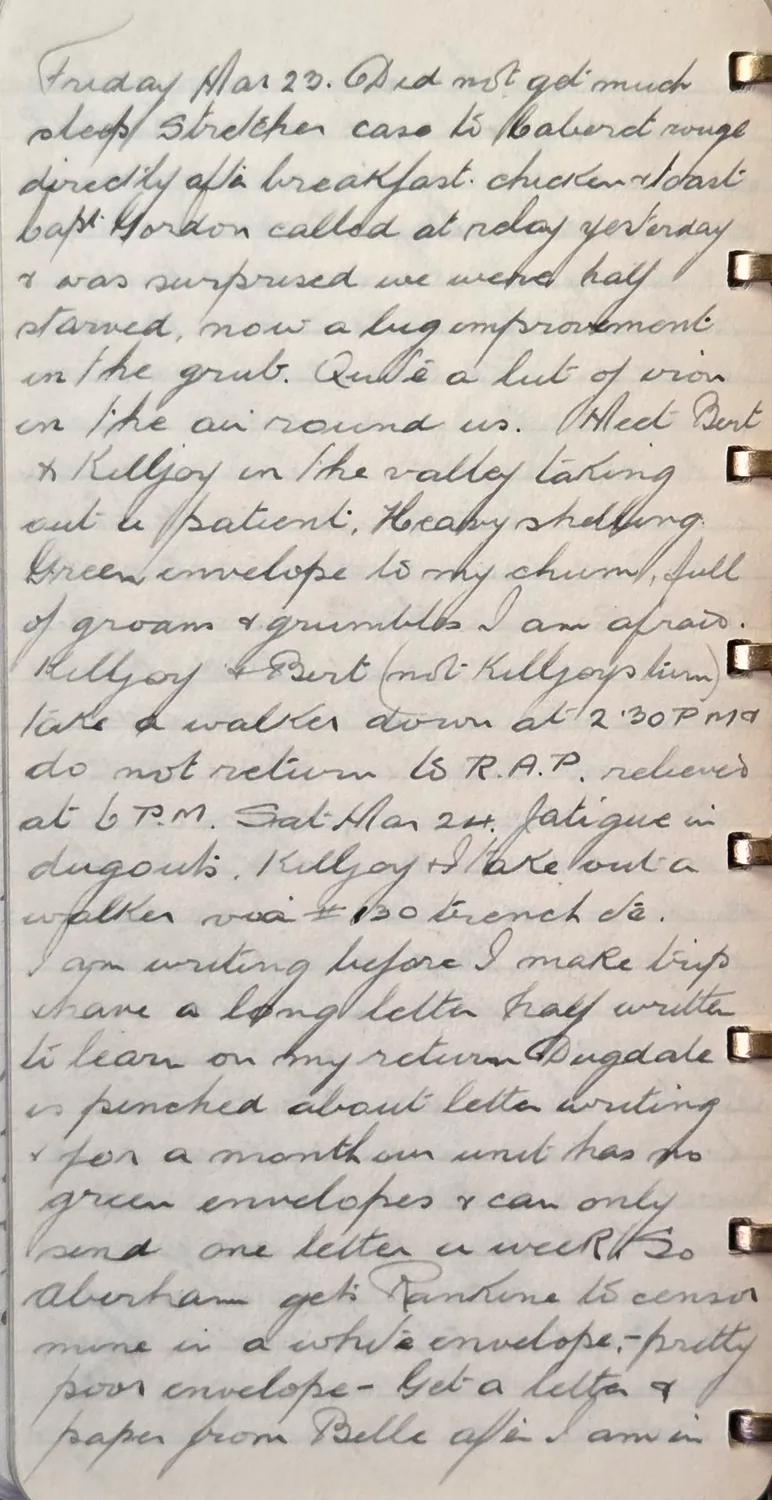 Friday Mar 23. Did not get much
sleep Stretcher case to Cabaret rouge
directly after breakfast. chicken & toast
Capt. Gordon called at relay yesterday
& was surprised we were half
starved, now a big improvement
in the grub. Quite a bit of iron
in the air round us. Meet Bert
& Killjoy in the valley taking
out a patient. Heavy shelling.
Green envelope to my chum, full
of groans & grumbles I am afraid.
Killjoy & Bert (not Killjoys turn)
take a walker down at 2.30 PM &
do not return to R.A.P. relieved
at 6 P.M. Sat Mar 24. fatigue in
dugouts. Killjoy & I take out a
walker via # 130 trench etc.
I am writing before I make trip
& have a long letter half written
to learn on my return Dugdale
is pinched about letter writing
& for a month our unit has no
green envelopes & can only
send one letter a week. So
Aberham gets Rankine to censor
mine in a white envelope, - pretty
poor envelope - Get a letter &
paper from Belle after I am in